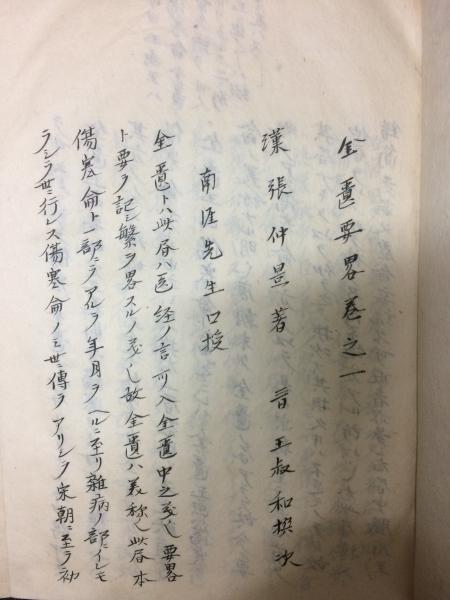 金匱要畧巻之一
漢張仲景著　晋王叔和撰次
南涯先生口授
金匱トハ此書ハ医経ノ言可入金匱中之意也要畧
ト要ヲ記シ繁ヲ畧スルノ意也故金匱ハ美称也此書本
傷寒論ト一部ニテアルヲ年月ヲヘルニ至リ雑病ノ部ニイレモ
ラシテ世ニ行レス傷寒論ノミ世ニ傳テアリシヲ宋朝ニ至テ初